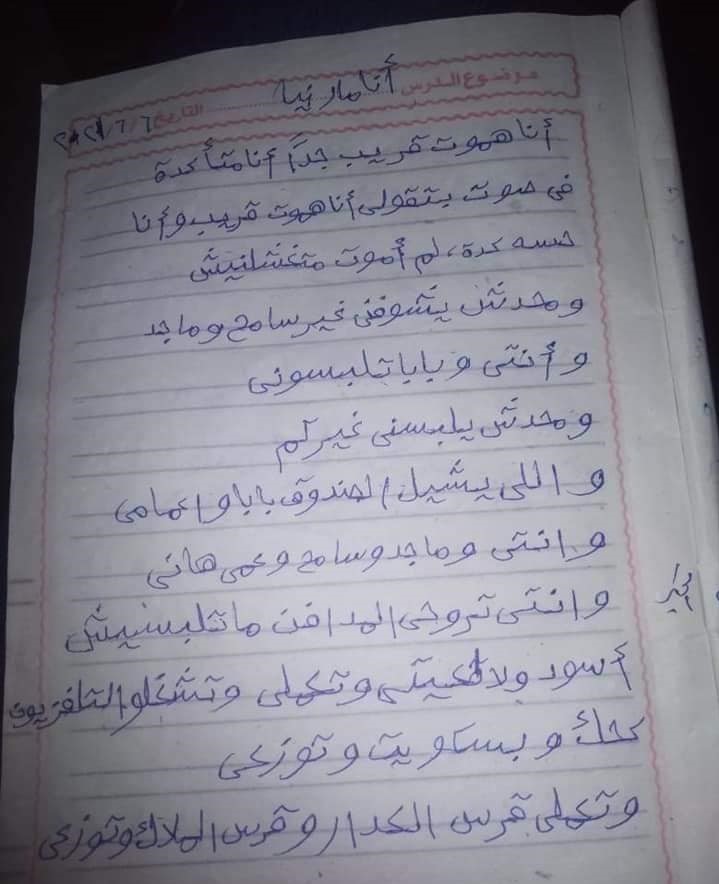 موضوع الدرس أنا مارينا التاريخ ٢٠٢١/٦/٦
أنا هموت قريب جداً أنا متأكدة
فى صوت بتقولى أنا هموت قريب وأنا
حسه كدة، لم أموت متغسلنيش
ومحدش يشوفنى غير سامح وماجد
وأنتى وبابا تلبسونى
ومحدش يلبسنى غيركم
واللى يشيل الصندوق بابا واعمامى
وانتى وماجد وسامح وعمى هانى
وانتى تروحى المدافن ماتلبسيش
أسود ولا تعيتى وتعملى وتشغلو التلفزيون
كحك وبسكويت وتوزعى
وتعملى قرس الكدار وقرس الملاك وتوزعى